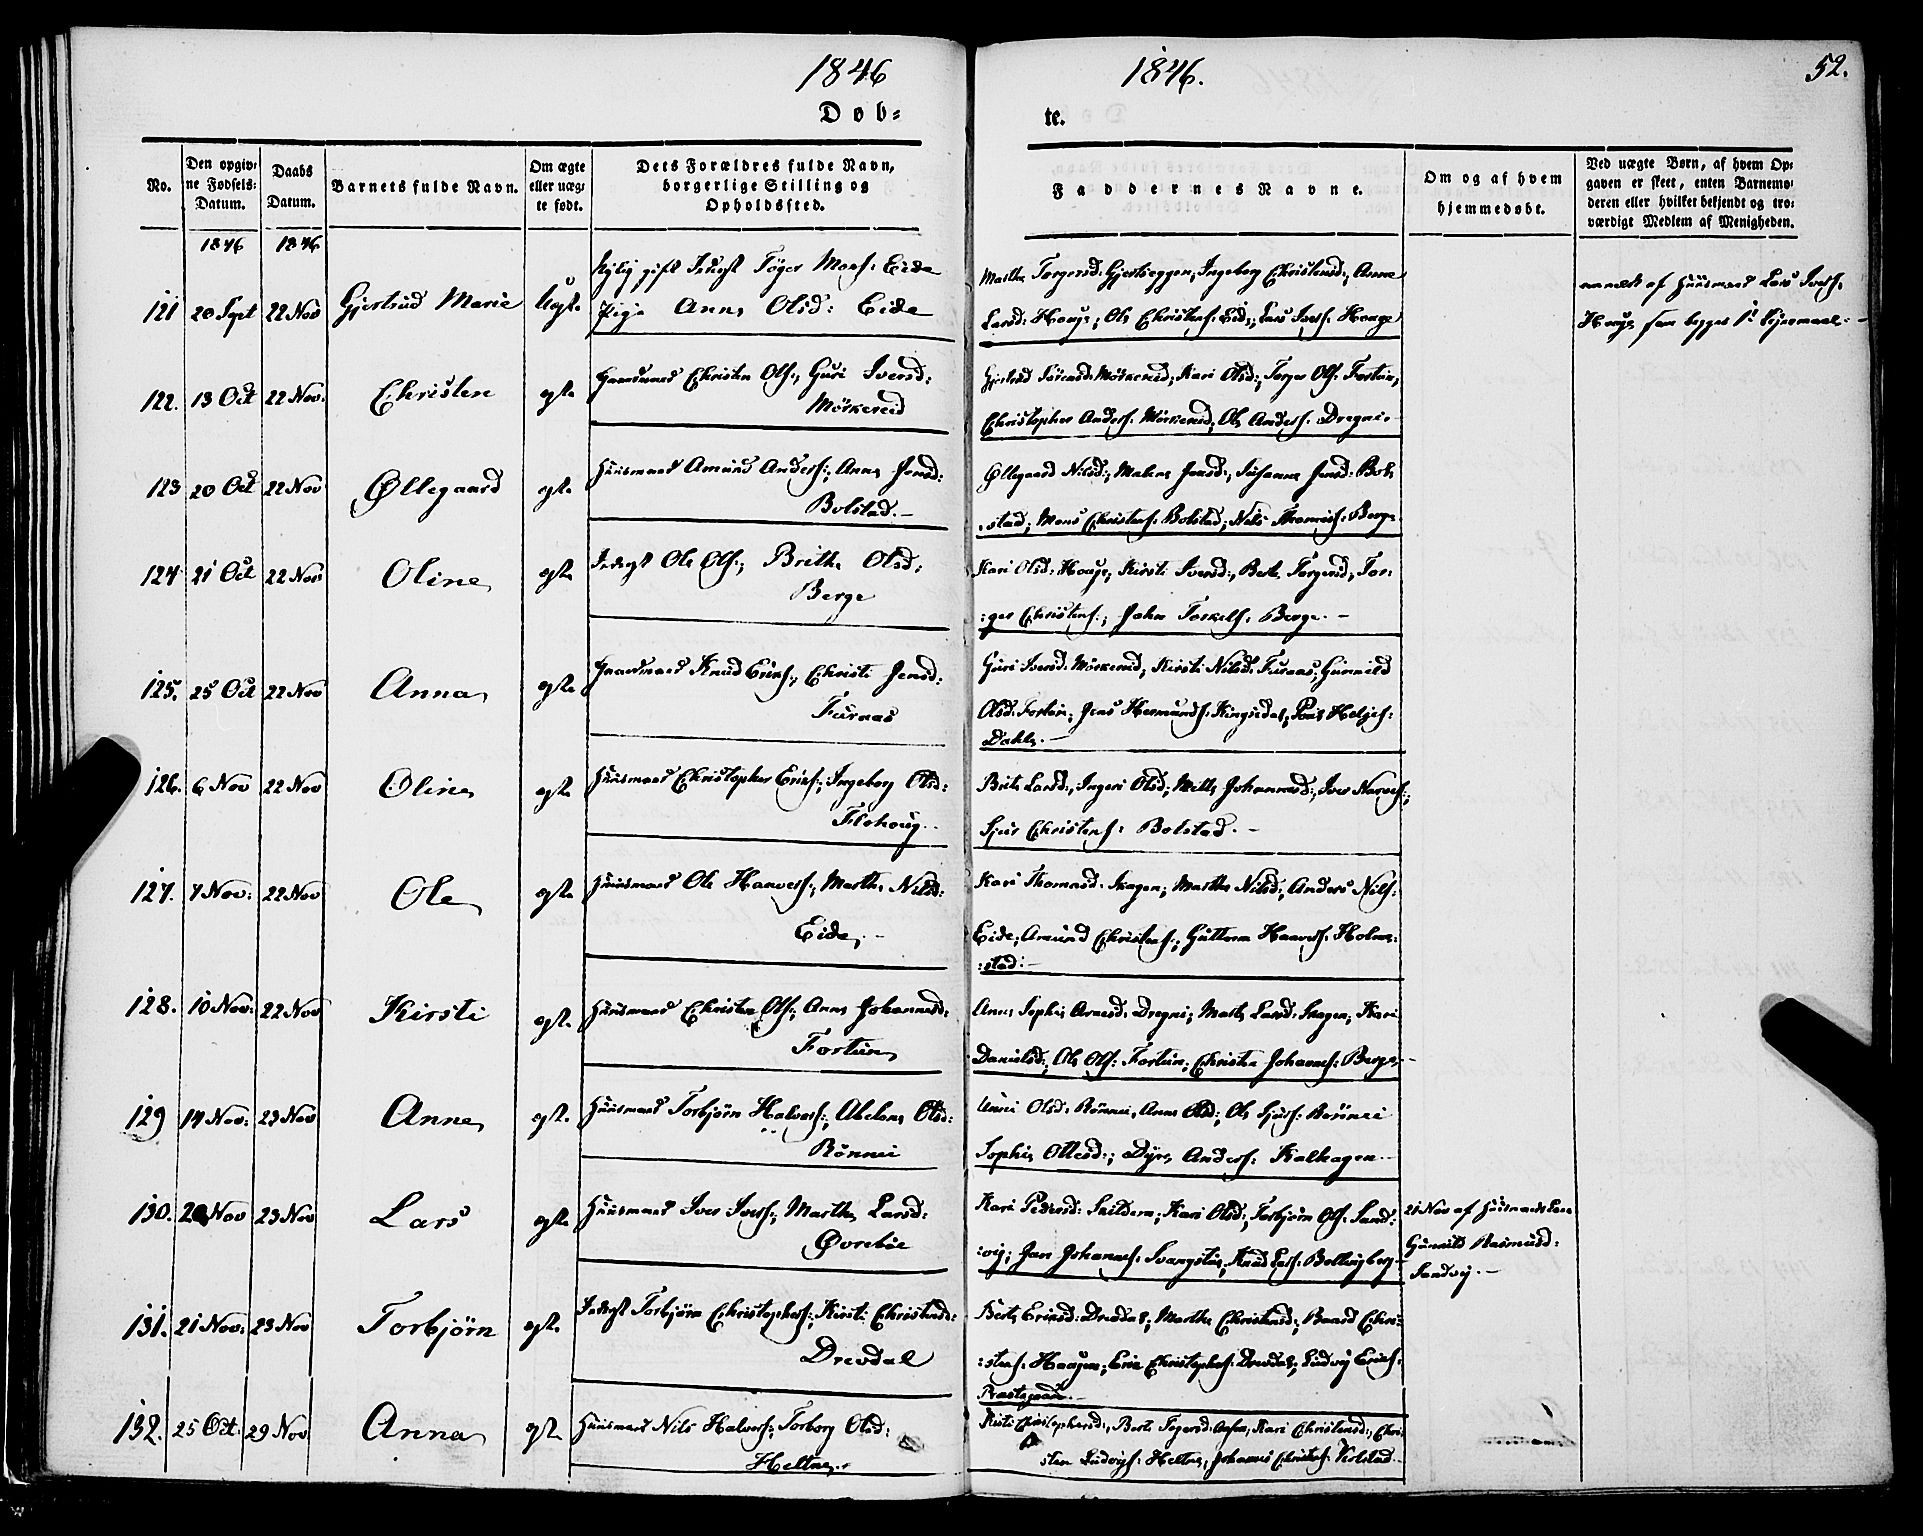 1846
1846.
52.
Døb-
te.
No.
Den opgiv-
ne Fødsels-
Datum.
Daabs
Datum.
Barnets fulde Navn.
Om ægte
eller uæg-
te født.
Dets Forældres fulde Navn,
borgerlige Stilling og
Opholdssted.
Faddernes Navne.
Om og af hvem
hjemmedøbt.
Ved uægte Børn, af hvem Op-
gaven er skeet, enten Barnemo-
deren eller hvilket bekjendt og tro-
værdigt Medlem af Menigheden.
1846 1846
121 20 Sept 22 Nov Gjertrud Marie Uægte
gift Tøger Eide
Pige Anna Olsd: Eide
Marthe Torgersd: Ingeborg Christensd:, Anne
Larsd: Houge, Ole Christens: Eide, Lars Ivers: Houge
af Huusmand Lars Ivers:
Houge som
122. 13 Oct 22 Nov. Christen ægte
Gaardmand Christen Ols:, Guri Iversd:
Mörkereid
Gjertrud Mörkereid, Kari Olsd:, Torger Ols: Fortun,
Christopher Anders: Mörkereid, Ole Anders: Dregni
123 20 Oct 22 Nov Øllegaard ægte
Huusmand Amund Anders:, Anna Jensd:
Bolstad.
Øllegaard Nilsd:, Malene Jensd:, Susanna Jensd: Bol-
stad; Mons Christens: Bolstad; Nils Thomas: Berge
124 21 Oct 22 Nov Oline ægte
Inderst Ole Ols:, Brithe Olsd:
Berge
Kari Olsd: Houge, Kirsti Iversd:, Berte Torgersd:, Tor-
:ger Christens:, John Torkels: Berge.
125. 25 Oct 22 Nov Anna ægte
Gaardmand Knud Erics:, Christi Jensd:
Furaas
Guri Iversd: Mörkereid, Kirsti Nilsd: Furaas, Gunnild
Olsd: Fortun; Jens Hermunds: Ringsdal, Helges:
Dahle.
126. 6 Nov 22 Nov Oline ægte
Huusmand Christopher Erics:, Ingeborg Olsd:
Flohoug.
Brite Larsd:, Ingeri Olsd; Mette Johannesd:, Iver
Sjur Christens: Bolstad.
127. 7 Nov: 22 Nov Ole ægte
Huusmand Ole Haavers:, Marthe Nilsd:
Eide,
Kari Thomasd: Skagen; Marthe Nilsd:, Anders Nils:
Eide; Amund Christens:, Guttorm Haavers: Holm-
:stad:
128. 10 Nov: 22 Nov Kirsti ægte
Huusmand Christen Ols:, Anna Johannesd:
Fortun
Anne Sophie Arnesd: Dregni; Marthe Larsd: Skagen, Kari
Danielsd:, Ole Ols: Fortun, Christen Johannes: Berge
129 14 Nov: 23 Nov Anne ægte
Huusmand Torbjörn Halvors:, Abelone Olsd:
Rönnei
Unni Olsd: Rönnei, Anne Olsd:, Ole Sjurs: Rönnei
Sophie Ottesd:, Anders: Kalhagen
130. 20 Nov 23 Nov Lars ægte
Huusmand Iver Ivers:, Marthe Larsd:
Øvrebøe
Kari Pedersd: Kari Olsd:, Torbjörn Ols: Sand-
:vig; Jan Johannes: Knud Lars: Bolling
21 Nov af
Gunnild Rasmusd:
Sandvig.
131. 21 Nov: 23 Nov Torbjörn ægte
Inderst Torbjörn Christophers:, Kirsti Christensd:
Drevdal
Berte Ericsd: Drevdal, Marthe Christensd:, Baard Chri-
:stens: Haugen, Eric Christophers: Drevdal, Ludvig Erics:
Prestegaard.
132. 25 Oct. 29 Nov Anna ægte
Huusmand Nils Halvors:, Torborg Olsd:
Heltne.
Kirsti Christophersd:, Berte Kari Christensd:, Chri-
sten Ludvigs: Heltne, Johannes Christens: